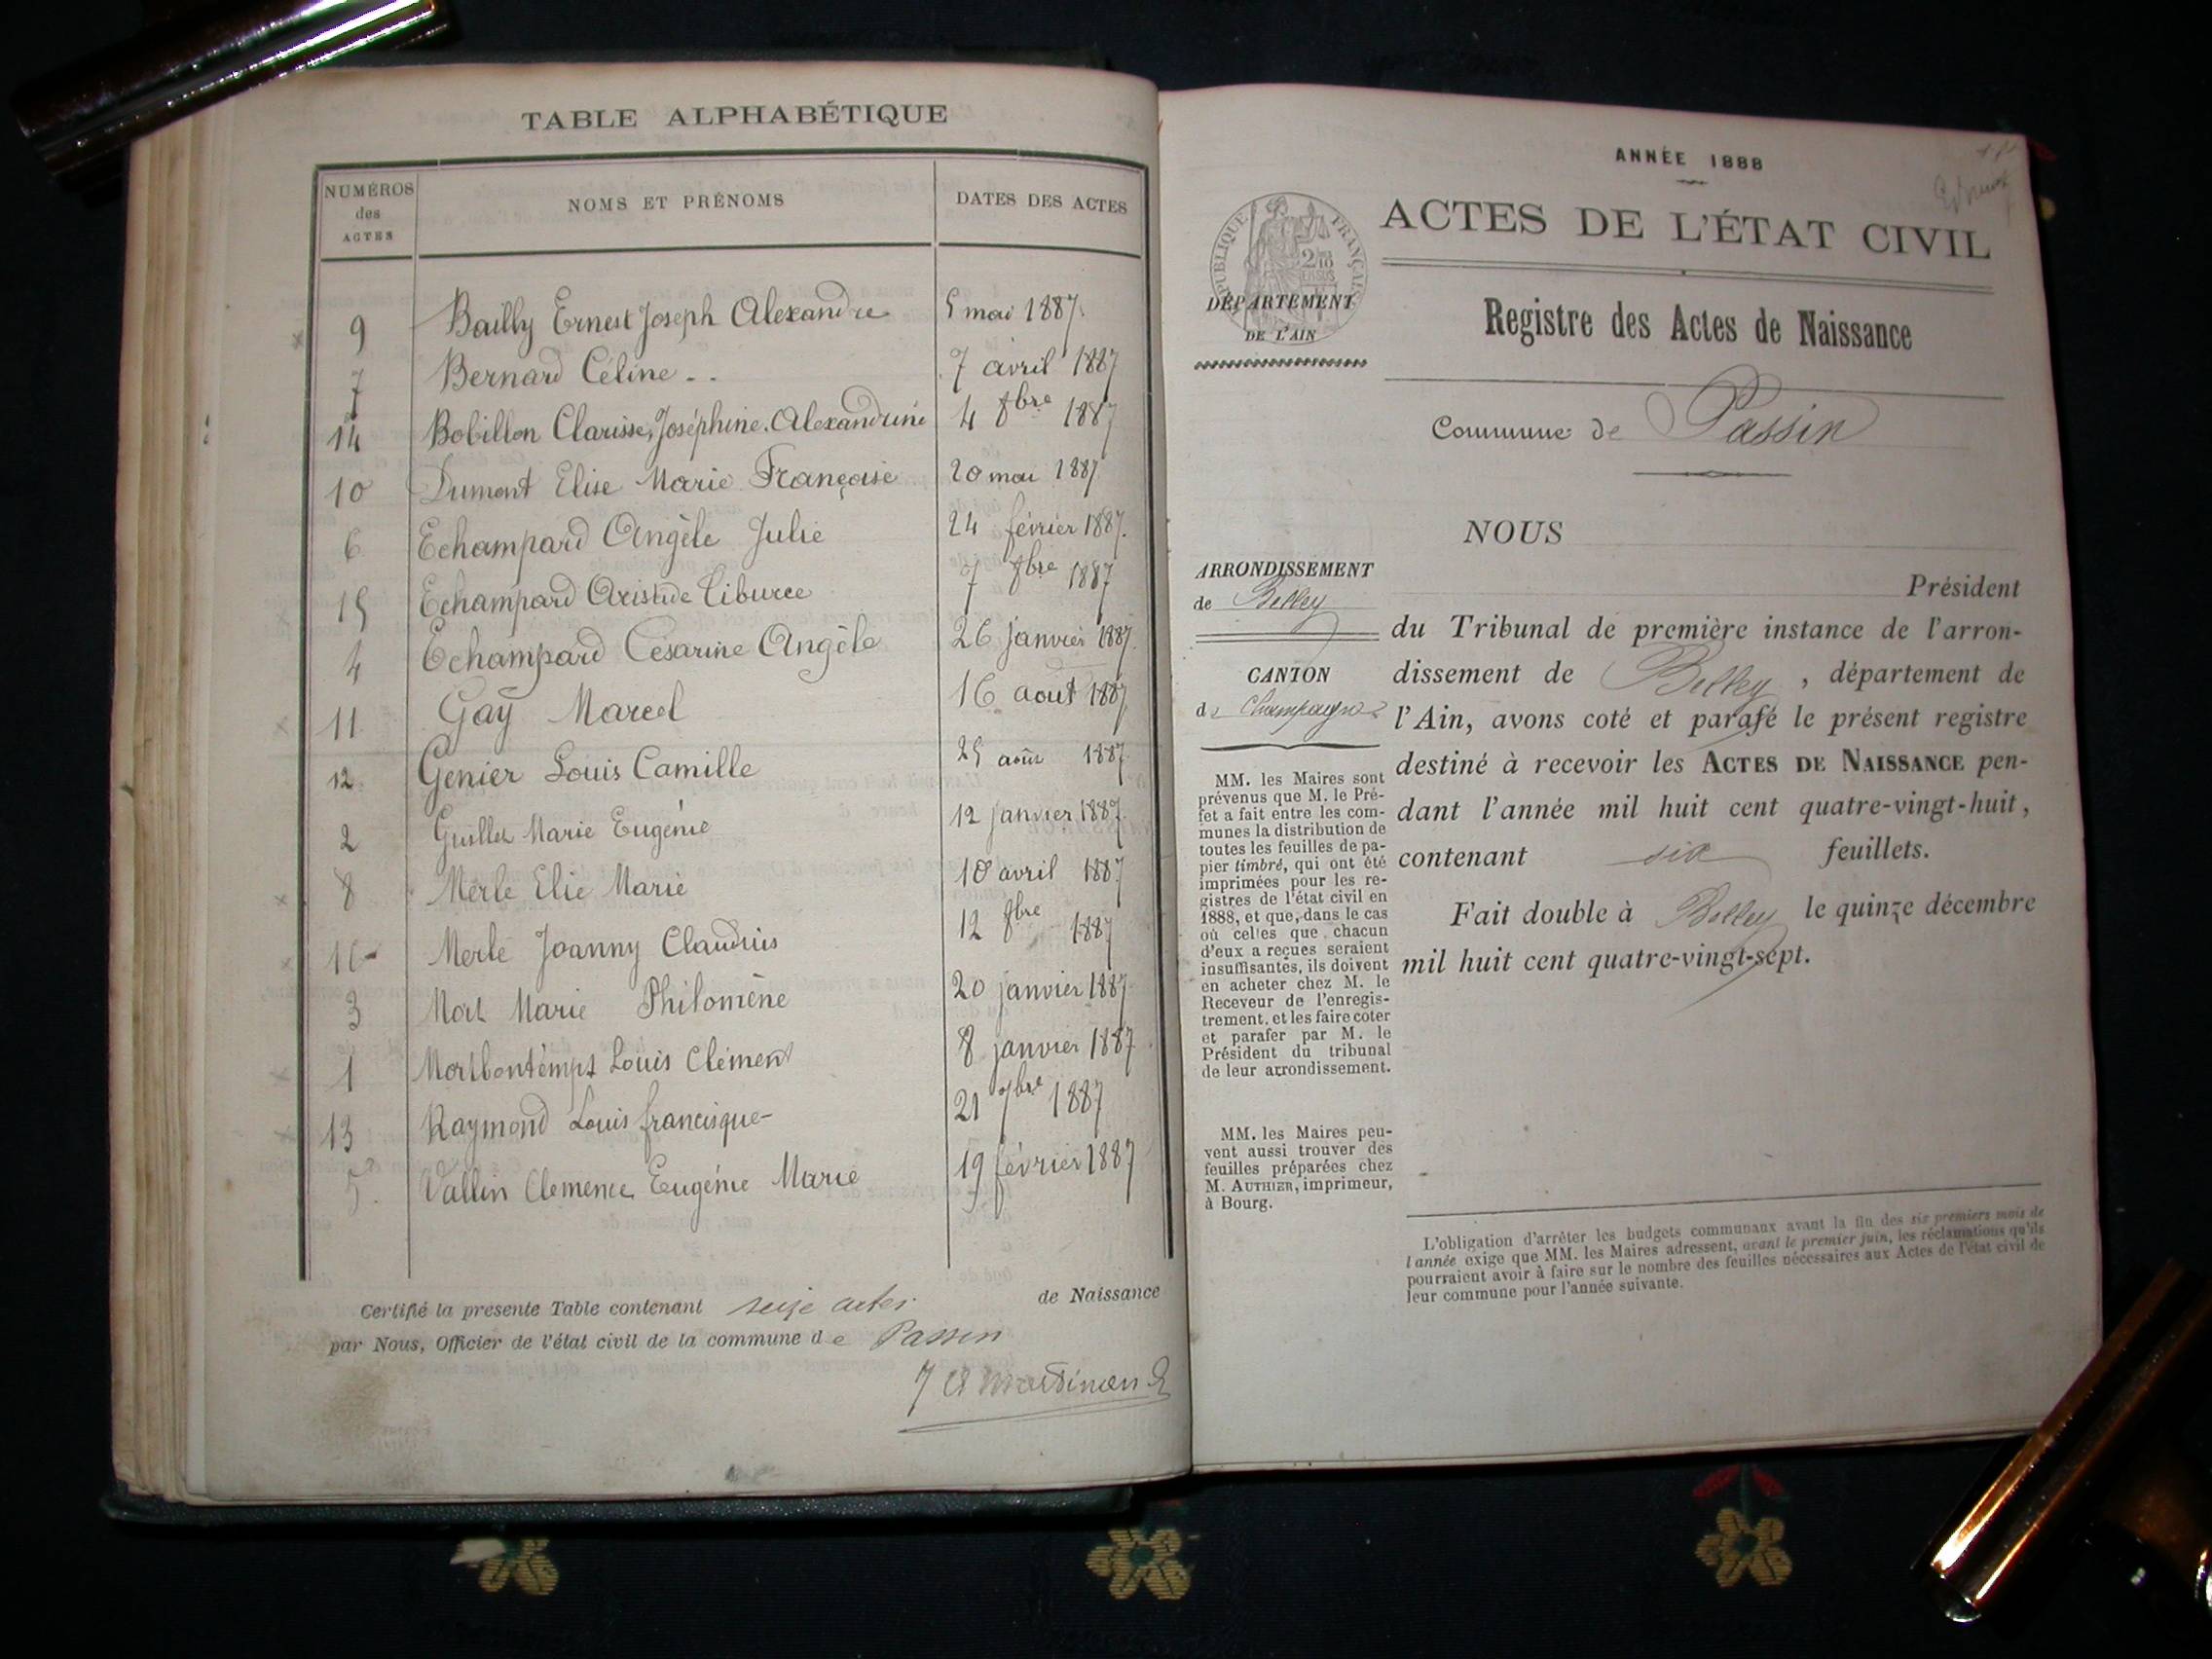 TABLE ALPHABÉTIQUE
NUMÉROS des ACTES NOMS ET PRÉNOMS DATES DES ACTES
9 Bailly Ernest Joseph Alexandre 5 mai 1887.
7 Bernard Céline 7 avril 1887
14 Bobillon Clarisse, Joséphine. Alexandrine 4 8bre 1887
10 Dumont Elise Marie Françoise 20 mai 1887
6 Echampard Angèle Julie 24 février 1887.
15 Echampard Aristide Tiburce 7 8bre 1887
4 Echampard Césarine Angèle 26 janvier 1887.
11 Gay Marcel 16 aout 1887
12. Genier Louis Camille 25 août 1887
2 Guillet Marie Eugénie 12 janvier 1887.
8 Merle Elie Marie 18 avril 1887
16 Merle Joanny Claudius 12 8bre 1887
3 Mort Marie Philomène 20 janvier 1887
1 Montbontemps Louis Clément 8 janvier 1887
13 Raymond Louis francisque 21 7bre 1887
5. Vallin Clemence Eugénie Marie 19 février 1887
Certifié la presente Table contenant seize actes de Naissance
par Nous, Officier de l'état civil de la commune de Passin
Martinand
ANNÉE 1888
ACTES DE L'ÉTAT CIVIL
RÉPUBLIQUE FRANÇAISE
DÉPARTEMENT
DE L'AIN
Registre des Actes de Naissance
Commune de Passin
ARRONDISSEMENT
de Belley
CANTON
de Champagne
MM. les Maires sont
prévenus que M. le Pré-
fet a fait entre les com-
munes la distribution de
toutes les feuilles de pa-
pier timbré, qui ont été
imprimées pour les re-
gistres de l'état civil en
1888, et que, dans le cas
où celles que chacun
d'eux a reçues seraient
insuffisantes, ils doivent
en acheter chez M. le
Receveur de l'enregis-
trement, et les faire coter
et parafer par M. le
Président du tribunal
de leur arrondissement.
MM. les Maires peu-
vent aussi trouver des
feuilles préparées chez
M. AUTHIER, imprimeur,
à Bourg.
NOUS
Président
du Tribunal de première instance de l'arron-
dissement de Belley, département de
l'Ain, avons coté et parafé le présent registre
destiné à recevoir les ACTES DE NAISSANCE pen-
dant l'année mil huit cent quatre-vingt-huit,
contenant six feuillets.
Fait double à Belley le quinze décembre
mil huit cent quatre-vingt-sept.
L'obligation d'arrêter les budgets communaux avant la fin des six premiers mois de
l'année exige que MM. les Maires adressent, avant le premier juin, les réclamations qu'ils
pourraient avoir à faire sur le nombre des feuilles nécessaires aux Actes de l'état civil de
leur commune pour l'année suivante.